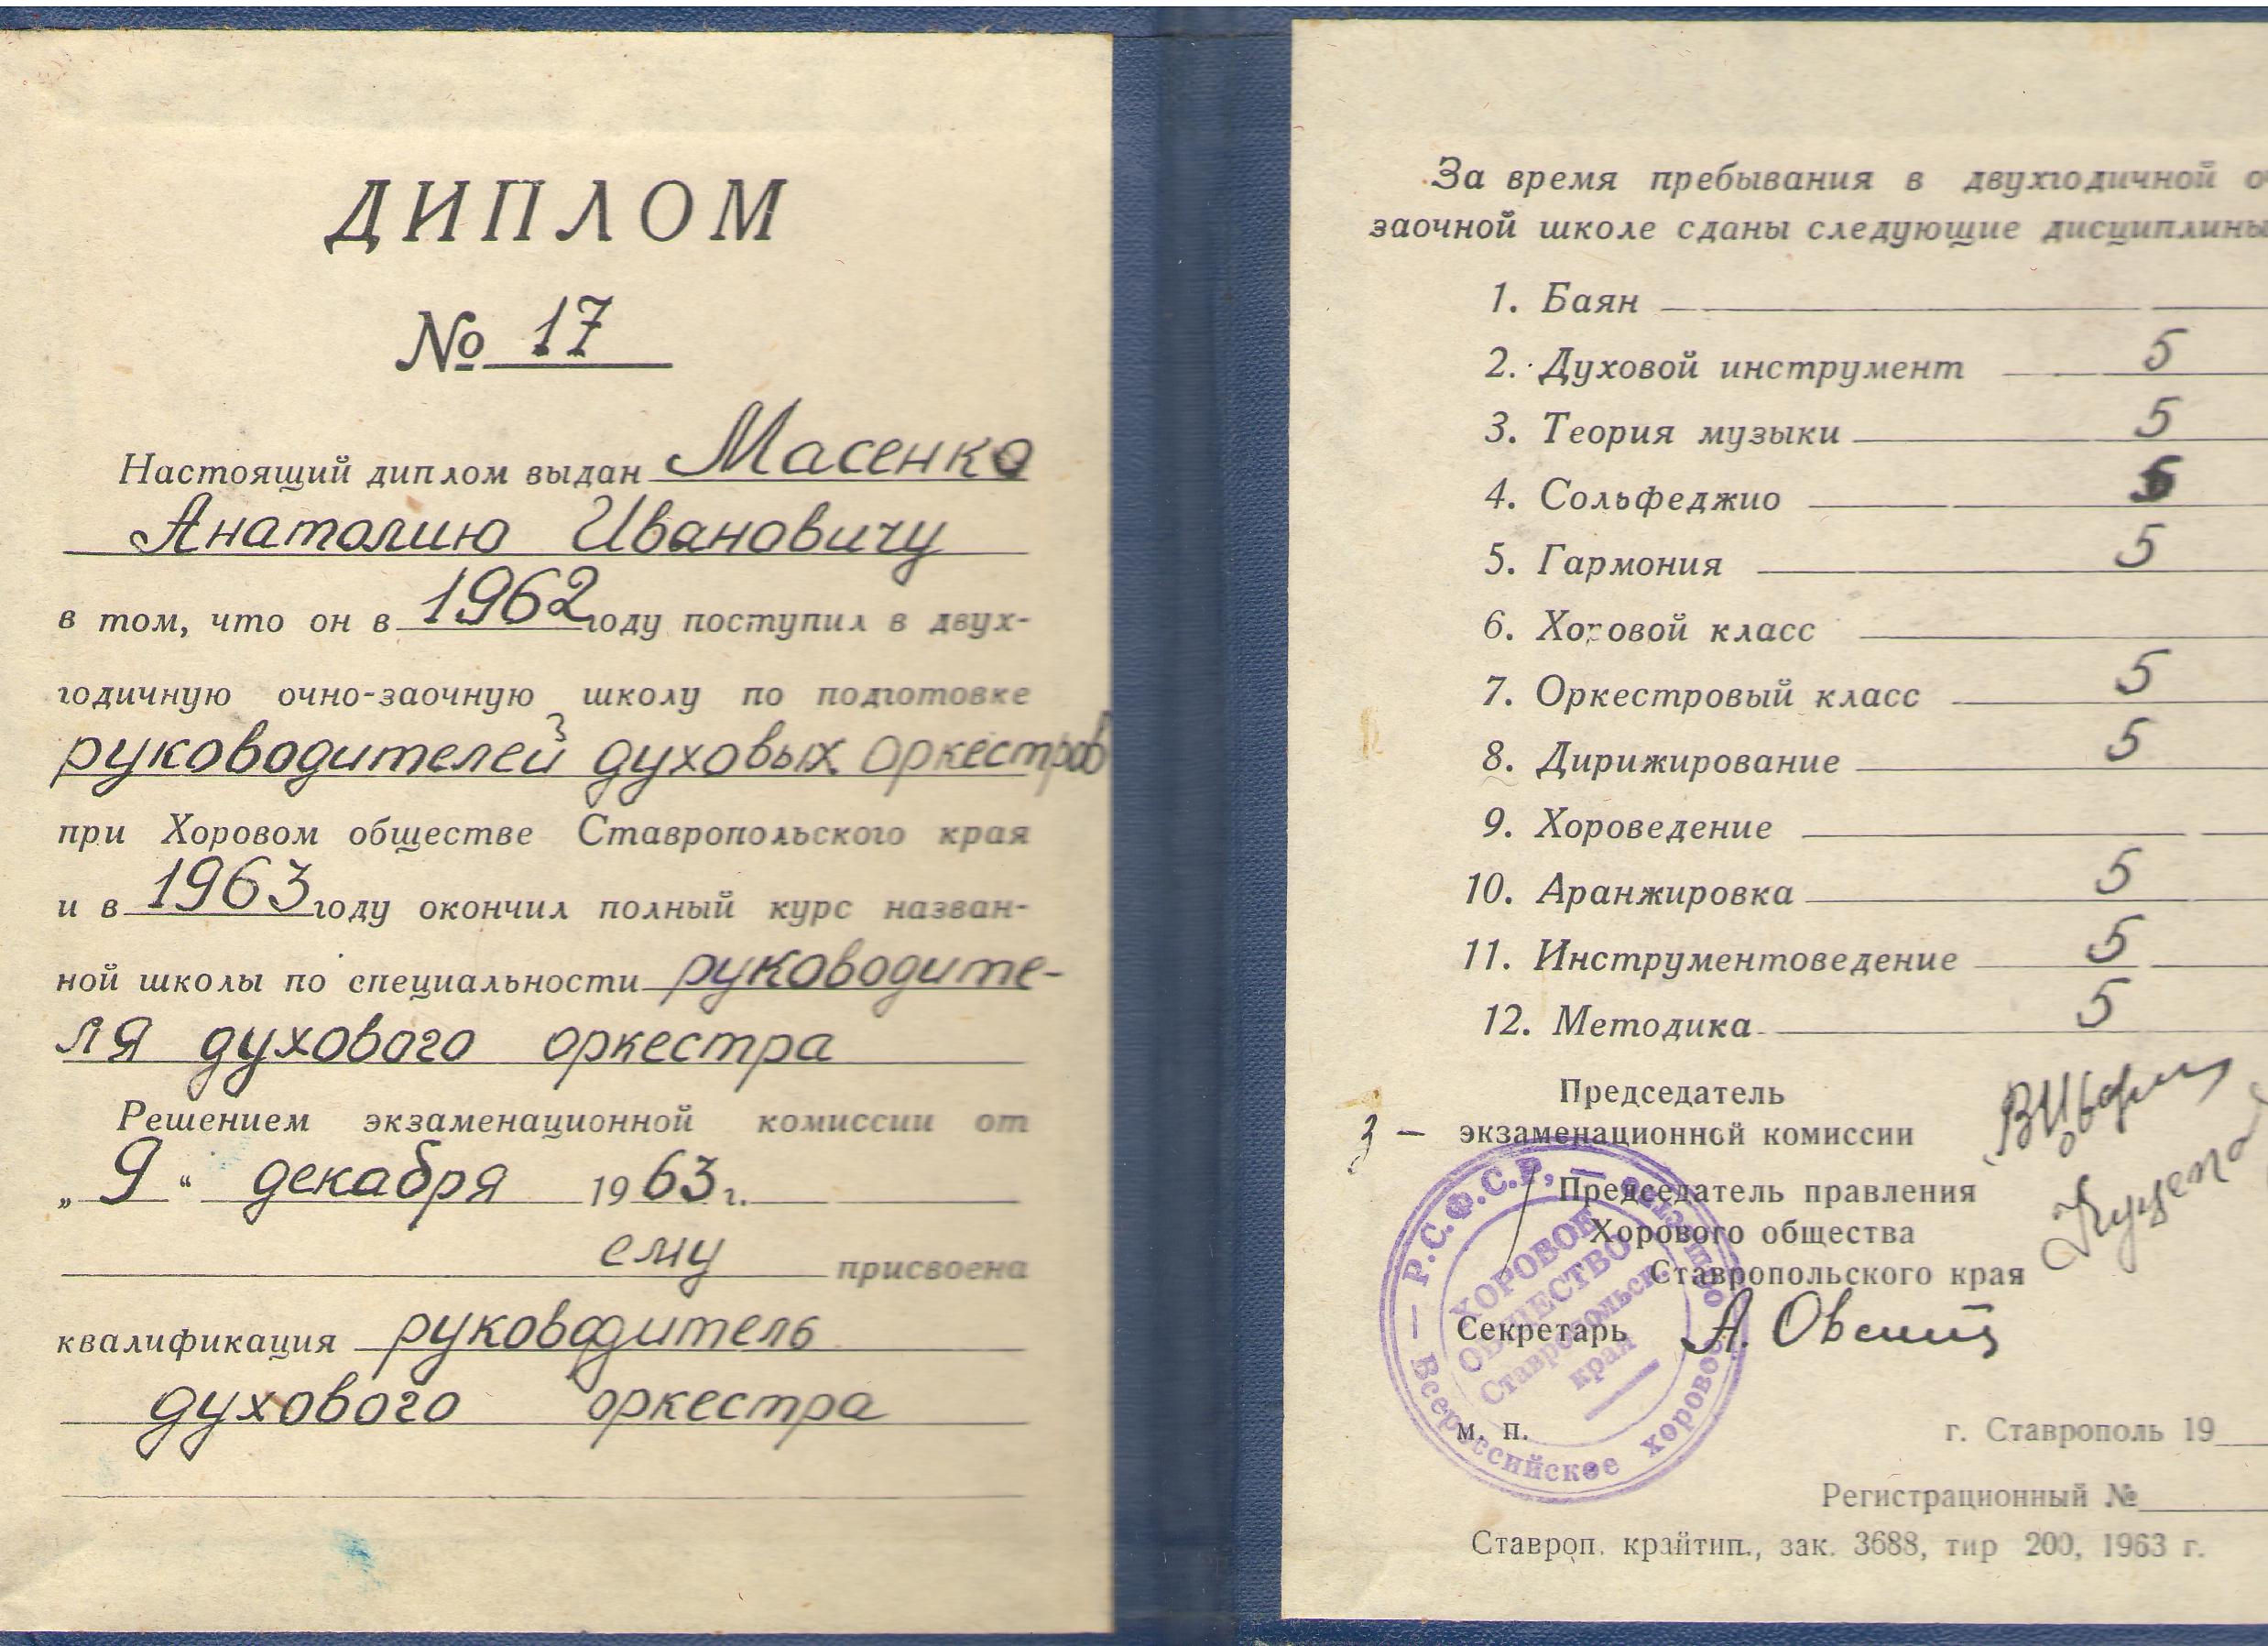 ДИПЛОМ
№ 17
Настоящий диплом выдан Масенко
Анатолию Ивановичу
в том, что он в 1962 году поступил в двух-
годичную очно-заочную школу по подготовке
руководителей духовых оркестров
при Хоровом обществе Ставропольского края
и в 1963 году окончил полный курс назван-
ной школы по специальности руководите-
ля духового оркестра
Решением экзаменационной комиссии от
„ 9 “ декабря 1963 г.
ему присвоена
квалификация руководитель
духового оркестра
За время пребывания в двухгодичной о
заочной школе сданы следующие дисциплины
1. Баян
2. Духовой инструмент 5
3. Теория музыки 5
4. Сольфеджио 5
5. Гармония 5
6. Хоровой класс
7. Оркестровый класс 5
8. Дирижирование 5
9. Хороведение
10. Аранжировка 5
11. Инструментоведение 5
12. Методика 5
Председатель
экзаменационной комиссии
Председатель правления
Хорового общества
Ставропольского края
Секретарь А.
м. п.
г. Ставрополь 19
Регистрационный №
Ставроп. крайтип., зак. 3688, тир 200, 1963 г.
Р.С.Ф.С.Р. — Всероссийское хоровое общество
ХОРОВОЕ
ОБЩЕСТВО
Ставропольск.
края